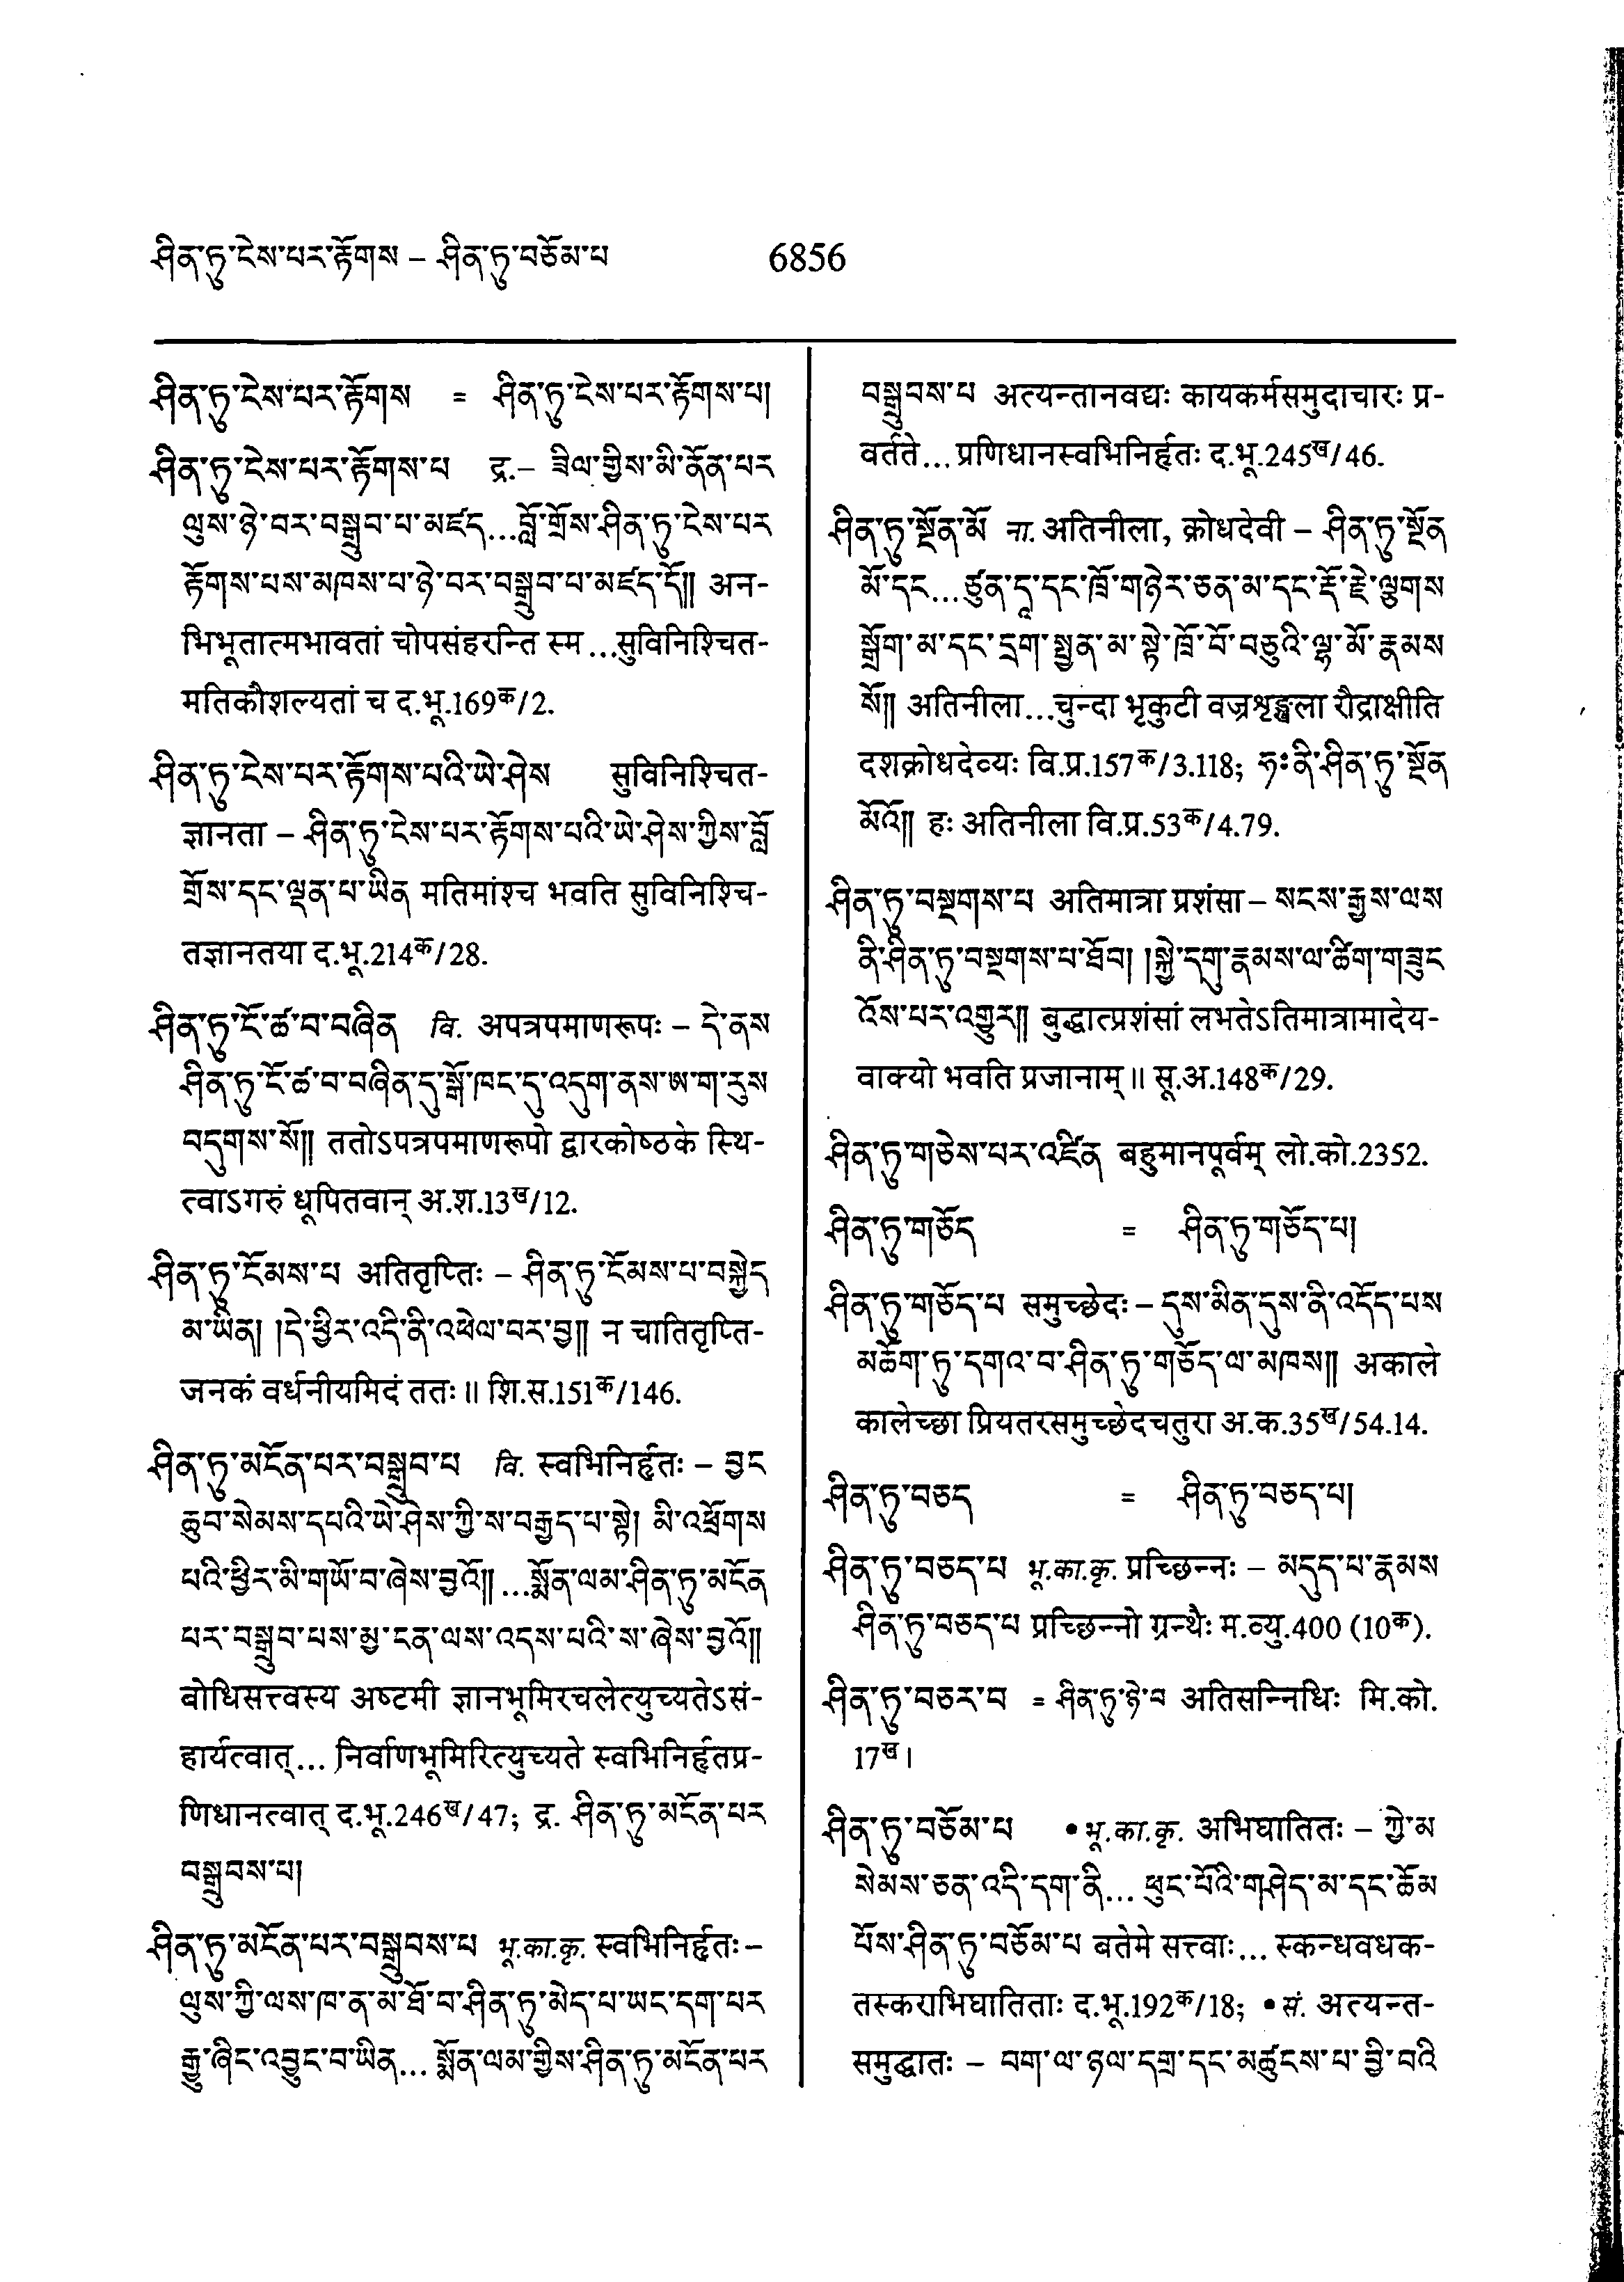 ཤིན་ཏུ་ངེས་པར་རྟོགས – ཤིན་ཏུ་བཅོམ་པ 6856
ཤིན་ཏུ་ངེས་པར་རྟོགས = ཤིན་ཏུ་ངེས་པར་རྟོགས་པ།
ཤིན་ཏུ་ངེས་པར་རྟོགས་པ द्र.– ཟིལ་གྱིས་མི་ནོན་པར
ལུས་ཉེ་བར་བསྒྲུབ་པ་མཛད...བློ་གྲོས་ཤིན་ཏུ་ངེས་པར
རྟོགས་པས་མཁས་པ་ཉེ་བར་བསྒྲུབ་པ་མཛད་དོ།། अन-
भिभूतात्मभावतां चोपसंहरन्ति स्म ...सुविनिश्चित-
मतिकौशल्यतां च द.भू.169क/2.
ཤིན་ཏུ་ངེས་པར་རྟོགས་པའི་ཡེ་ཤེས सुविनिश्चित-
ज्ञानता – ཤིན་ཏུ་ངེས་པར་རྟོགས་པའི་ཡེ་ཤེས་ཀྱིས་བློ
གྲོས་དང་ལྡན་པ་ཡིན मतिमांश्च भवति सुविनिश्चि-
तज्ञानतया द.भू.214क/28.
ཤིན་ཏུ་ངོ་ཚ་བ་བཞིན वि. अपत्रपमाणरूपः – དེ་ནས
ཤིན་ཏུ་ངོ་ཚ་བ་བཞིན་དུ་སྒོ་ཁང་དུ་འདུག་ནས་ཨ་ག་རུས
བདུགས་སོ།། ततोऽपत्रपमाणरूपो द्वारकोष्ठके स्थि-
त्वाऽगरुं धूपितवान् अ.श.13ख/12.
ཤིན་ཏུ་ངོམས་པ अतितृप्तिः – ཤིན་ཏུ་ངོམས་པ་བསྐྱེད
མ་ཡིན། །དེ་ཕྱིར་འདི་ནི་འཕེལ་བར་བྱ།། न चातितृप्ति-
जनकं वर्धनीयमिदं ततः॥ शि.स.151क/146.
ཤིན་ཏུ་མངོན་པར་བསྒྲུབ་པ वि. स्वभिनिर्हृतः – བྱང
ཆུབ་སེམས་དཔའི་ཡེ་ཤེས་ཀྱི་ས་བརྒྱད་པ་སྟེ། མི་འཕྲོགས
པའི་ཕྱིར་མི་གཡོ་བ་ཞེས་བྱའོ།། ...སྨོན་ལམ་ཤིན་ཏུ་མངོན
པར་བསྒྲུབ་པས་མྱ་ངན་ལས་འདས་པའི་ས་ཞེས་བྱའོ།།
बोधिसत्त्वस्य अष्टमी ज्ञानभूमिरचलेत्युच्यतेऽसं-
हार्यत्वात्... निर्वाणभूमिरित्युच्यते स्वभिनिर्हृतप्र-
णिधानत्वात् द.भू.246ख/47; द्र. ཤིན་ཏུ་མངོན་པར
བསྒྲུབས་པ།
ཤིན་ཏུ་མངོན་པར་བསྒྲུབས་པ भू.का.कृ. स्वभिनिर्हृतः –
ལུས་ཀྱི་ལས་ཁ་ན་མ་ཐོ་བ་ཤིན་ཏུ་མེད་པ་ཡང་དག་པར
རྒྱུ་ཞིང་འབྱུང་བ་ཡིན... སྨོན་ལམ་གྱིས་ཤིན་ཏུ་མངོན་པར
བསྒྲུབས་པ अत्यन्तानवद्यः कायकर्मसमुदाचारः प्र-
वर्तते... प्रणिधानस्वभिनिर्हृतः द.भू.245ख/46.
ཤིན་ཏུ་སྔོན་མོ ना. अतिनीला, क्रोधदेवी – ཤིན་ཏུ་སྔོན
མོ་དང...ཙུན་དཱ་དང་ཁྲོ་གཉེར་ཅན་མ་དང་རྡོ་རྗེ་ལྕགས
སྒྲོག་མ་དང་དྲག་སྤྱན་མ་སྟེ་ཁྲོ་བོ་བཅུའི་ལྷ་མོ་རྣམས
སོ།། अतिनीला...चुन्दा भृकुटी वज्रशृङ्खला रौद्राक्षीति
दशक्रोधदेव्यः वि.प्र.157क/3.118; ཧཿནི་ཤིན་ཏུ་སྔོན
མོའོ།། हः अतिनीला वि.प्र.53क/4.79.
ཤིན་ཏུ་བསྔགས་པ अतिमात्रा प्रशंसा – སངས་རྒྱས་ལས
ནི་ཤིན་ཏུ་བསྔགས་པ་ཐོབ། །སྐྱེ་དགུ་རྣམས་ལ་ཚིག་གཟུང
འོས་པར་འགྱུར།། बुद्धात्प्रशंसां लभतेऽतिमात्रामादेय-
वाक्यो भवति प्रजानाम्॥ सू.अ.148क/29.
ཤིན་ཏུ་གཅེས་པར་འཛིན बहुमानपूर्वम् लो.को.2352.
ཤིན་ཏུ་གཅོད = ཤིན་ཏུ་གཅོད་པ།
ཤིན་ཏུ་གཅོད་པ समुच्छेदः – དུས་མིན་དུས་ནི་འདོད་པས
མཆོག་ཏུ་དགའ་བ་ཤིན་ཏུ་གཅོད་ལ་མཁས།། अकाले
कालेच्छा प्रियतरसमुच्छेदचतुरा अ.क.35ख/54.14.
ཤིན་ཏུ་བཅད = ཤིན་ཏུ་བཅད་པ།
ཤིན་ཏུ་བཅད་པ भू.का.कृ. प्रच्छिन्नः – མདུད་པ་རྣམས
ཤིན་ཏུ་བཅད་པ प्रच्छिन्नो ग्रन्थैः म.व्यु.400 (10क).
ཤིན་ཏུ་བཅར་བ = ཤིན་ཏུ་ཉེ་བ अतिसन्निधिः मि.को.
17ख।
ཤིན་ཏུ་བཅོམ་པ • भू.का.कृ. अभिघातितः – ཀྱེ་མ
སེམས་ཅན་འདི་དག་ནི... ཕུང་པོའི་གཤེད་མ་དང་ཆོམ
པོས་ཤིན་ཏུ་བཅོམ་པ बतेमे सत्त्वाः... स्कन्धवधक-
तस्कराभिघातिताः द.भू.192क/18; • सं. अत्यन्त-
समुद्धातः – བག་ལ་ཉལ་དགྲ་དང་མཚུངས་པ་བྱི་བའི